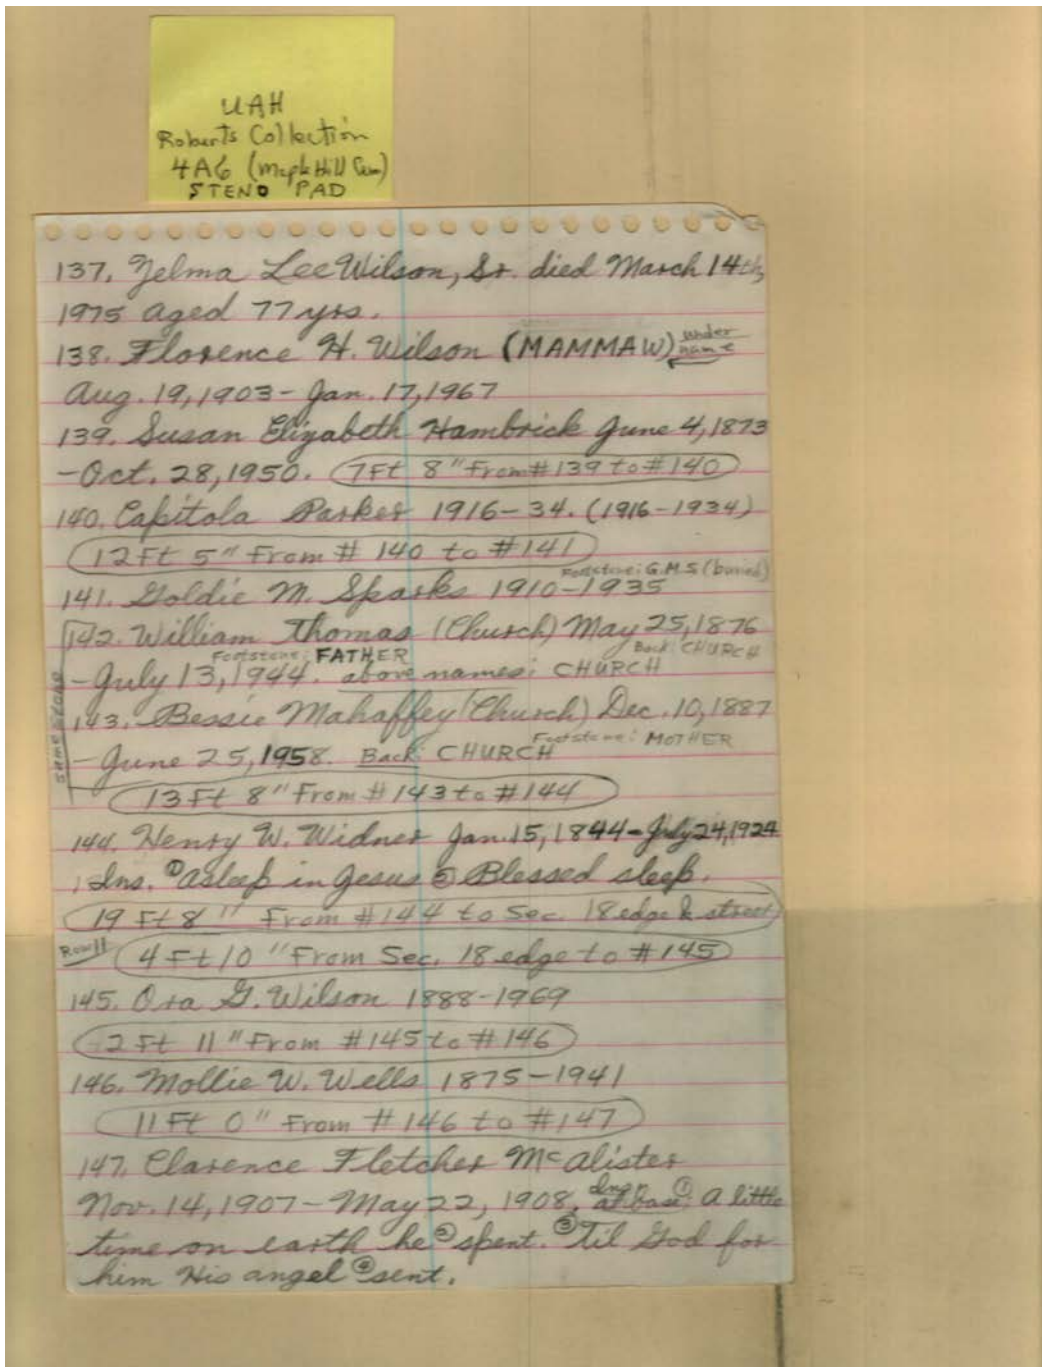 UAH
Roberts Collection
4A6 (Maple Hill Cem)
STENO PAD
137. Zelma Lee Wilson, Sr. died March 14th,
1975 aged 77 yrs.
138. Florence H. Wilson (MAMMAW) under name
Aug. 19, 1903 - Jan. 17, 1967
139. Susan Elizabeth Hambrick June 4, 1873
- Oct. 28, 1950. 7 Ft 8" From #139 to #140
140. Capitola Parker 1916-34. (1916-1934)
12 Ft 5" From #140 to #141
Footstone: G.M.S (buried)
141. Goldie M. Sparks 1910-1935
142. William Thomas (Church) May 25, 1876
Footstone: FATHER Back: CHURCH
- July 13, 1944. above names: CHURCH
same stone
143. Bessie Mahaffey (Church) Dec. 10, 1887
Footstone: MOTHER
- June 25, 1958. Back: CHURCH
13 Ft 8" From #143 to #144
144. Henry W. Widner Jan. 15, 1844 - July 24, 1924
Ins. ① Asleep in Jesus ② Blessed sleep.
19 Ft 8" From #144 to Sec. 18 edge & street
Row 11 4 Ft 10" From Sec. 18 edge to #145
145. Ora G. Wilson 1888-1969
2 Ft 11" From #145 to #146
146. Mollie W. Wells 1875-1941
11 Ft 0" From #146 to #147
147. Clarence Fletcher McAlister
Nov. 14, 1907 - May 22, 1908. Ins. at base: ① A little
time on earth he ② spent. ③ Til God for
him His angel ④ sent.